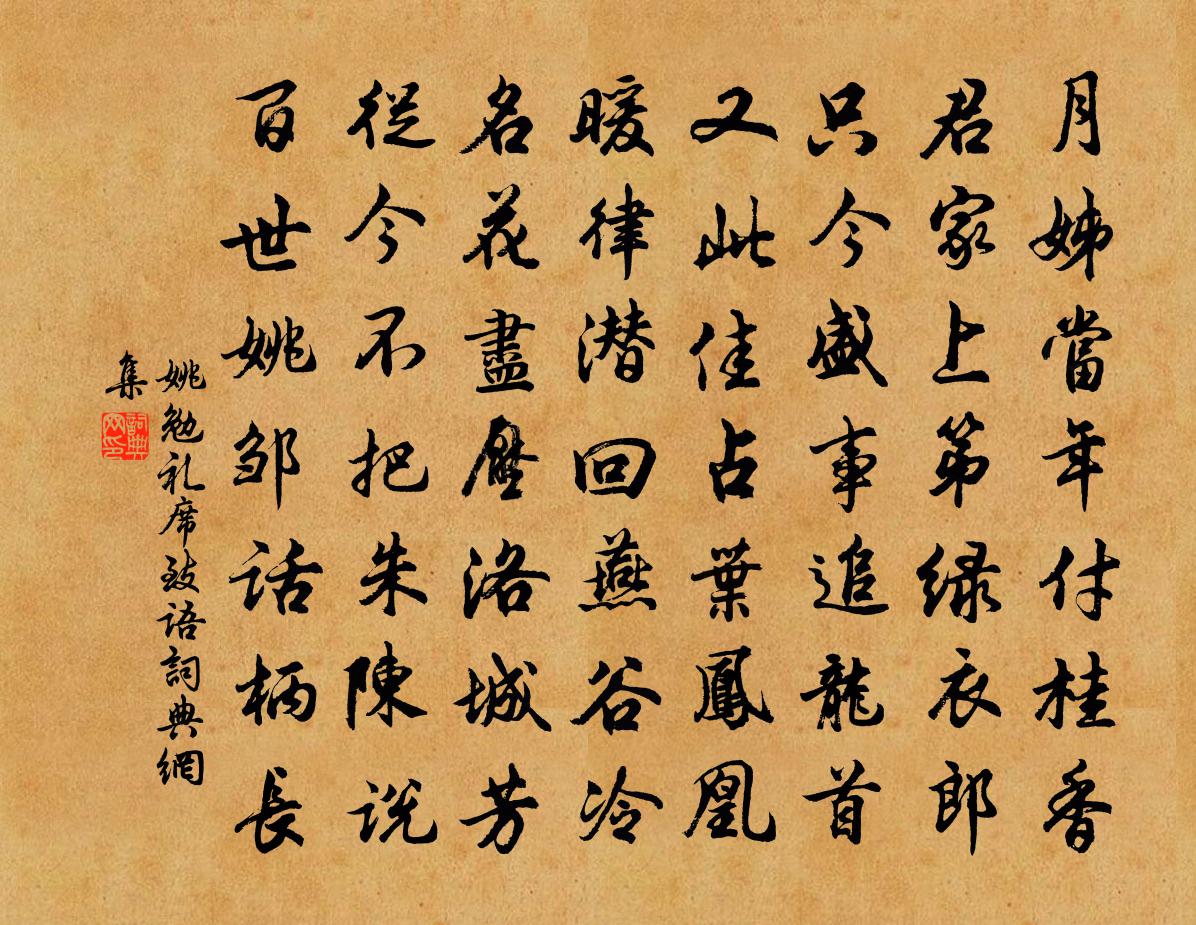 月姊當年付桂香
君家上第绿衣郎
只今盛事追龍首
又此佳占葉鳳凰
暖律潜回燕谷冷
名花盡壓洛城芳
從今不把朱陳说
百世姚邹话柄長
姚勉礼席致语詞典網
集
詞典
网印